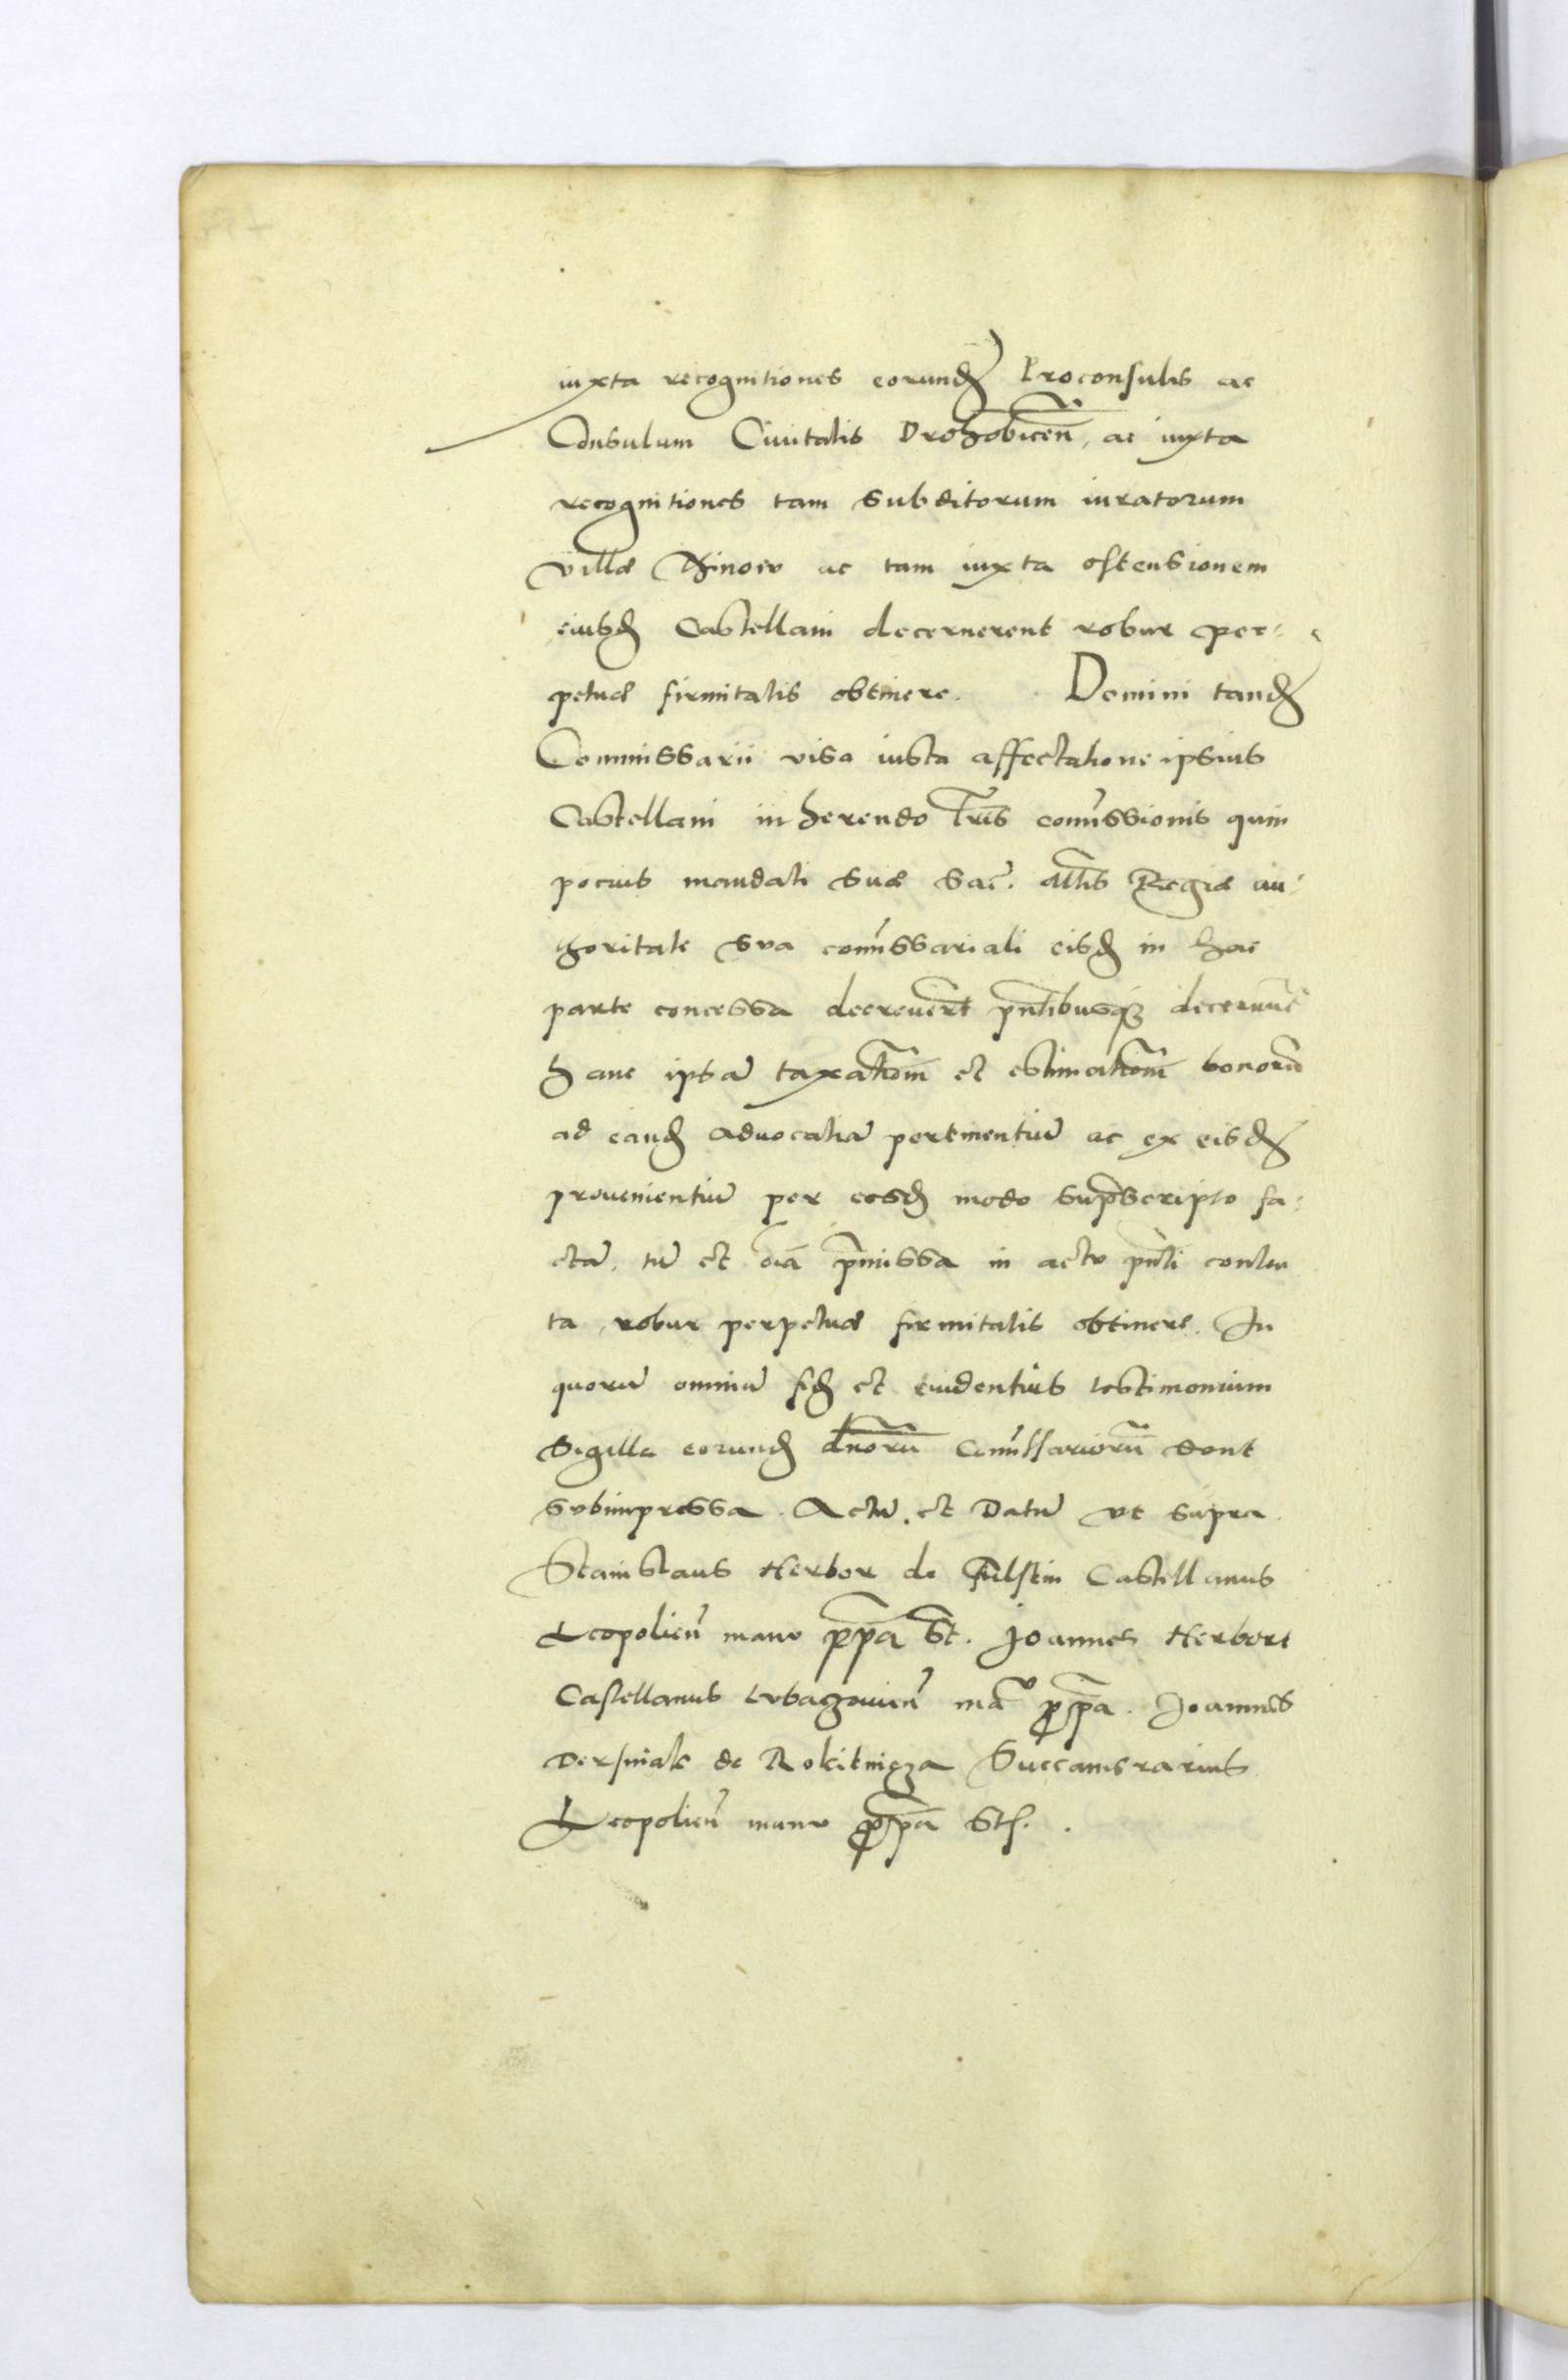 iuxta recognitiones eorund Proconsulis ac
Consulum Ciuitatis Drohobicen̄, ac iuxta
recognitiones tam subditorum iuratorum
villæ ac tam iuxta ostensionem
eiusd Castellani decernerent robur per-
petuæ firmitatis obtinere. Domini tand
Commissarii visa iusta affectatione ipsius
Castellani inherendo l̄ris com̄issionis quin
pocius mandati suæ Sac̄. Mt̄is Regiæ au-
thoritate sua com̄issariali eisd in hac
parte concessa decreuer̄t pn̄tibusq; decernūt
hanc ipsā taxatiōm et estimatiōm bonorū
ad eand aduocatiā pertinentiū ac ex eisd
prouenientiū per eosd modo sup̄scripto fa-
ctā, tū et oīa p̄missa in actu pn̄ti conten
ta, robur perpetuæ firmitatis obtinere. In
quorū omniū fid et euidentius testimonium
Sigilla eorund dn̄orū Com̄issariorū sunt
subimpressa. Actū et Datū vt supra.
Stanislaus Herbor de Fulstin Castellanus
Leopolien̄ manu pp̄a St. Joannes Herbort
Castellanus Lubaczouien̄ mā p̄pa. Joannes
Dersniak de Rokitnicza Succamerarius
Leopolien̄ manu p̄pa Sts.